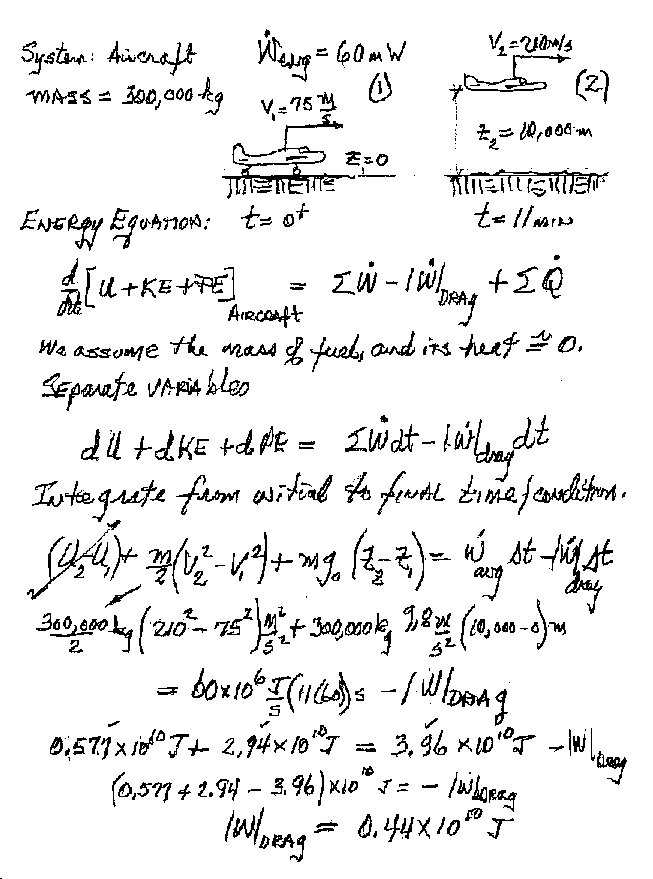 System: Aircraft   Ẇeng = 60 mW   V₂ = 210 m/s
MASS = 300,000 kg   V₁ = 75 m/s   (1)   (2)
Z = 0   Z₂ = 10,000 m
ENERGY EQUATION:   t = 0⁺   t = 11 MIN
d/dt [U + KE + PE]AIRCRAFT = ΣẆ - |Ẇ|DRAG + ΣQ̇
We assume the mass of fuel, and its heat ≅ 0.
Separate VARIAbles
dU + dKE + dPE = ΣẆdt - |Ẇ|drag dt
Integrate from initial to FINAL time/condition.
(U₂-U₁) + m/2 (V₂² - V₁²) + mg₀ (Z₂ - Z₁) = Ẇavg Δt - |Ẇ|drag Δt
300,000/2 kg (210² - 75²) m²/s² + 300,000 kg 9.8 m/s² (10,000 - 0) m
= 60 x 10⁶ J/s (11(60)) s - |W|DRAG
0.577 x 10¹⁰ J + 2.94 x 10¹⁰ J = 3.96 x 10¹⁰ J - |W|Drag
(0.577 + 2.94 - 3.96) x 10¹⁰ J = - |W|DRag
|W|DRAG = 0.44 x 10¹⁰ J